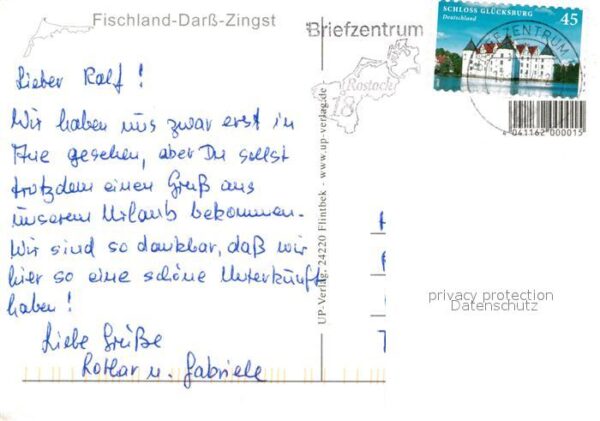 Fischland-Darß-Zingst
Lieber Ralf!
Wir haben uns zwar erst in
Aue gesehen, aber Du sollst
trotzdem einen Gruß aus
unserem Urlaub bekommen.
Wir sind so dankbar, daß wir
hier so eine schöne Unterkunft
haben!
Liebe Grüße
Lothar u. Gabriele
UP-Verlag, 24220 Flintbek - www.up-verlag.de
Briefzentrum
Rostock
18
SCHLOSS GLÜCKSBURG
Deutschland
45
BRIEFZENTRUM
4 041162 000015
privacy protection
Datenschutz